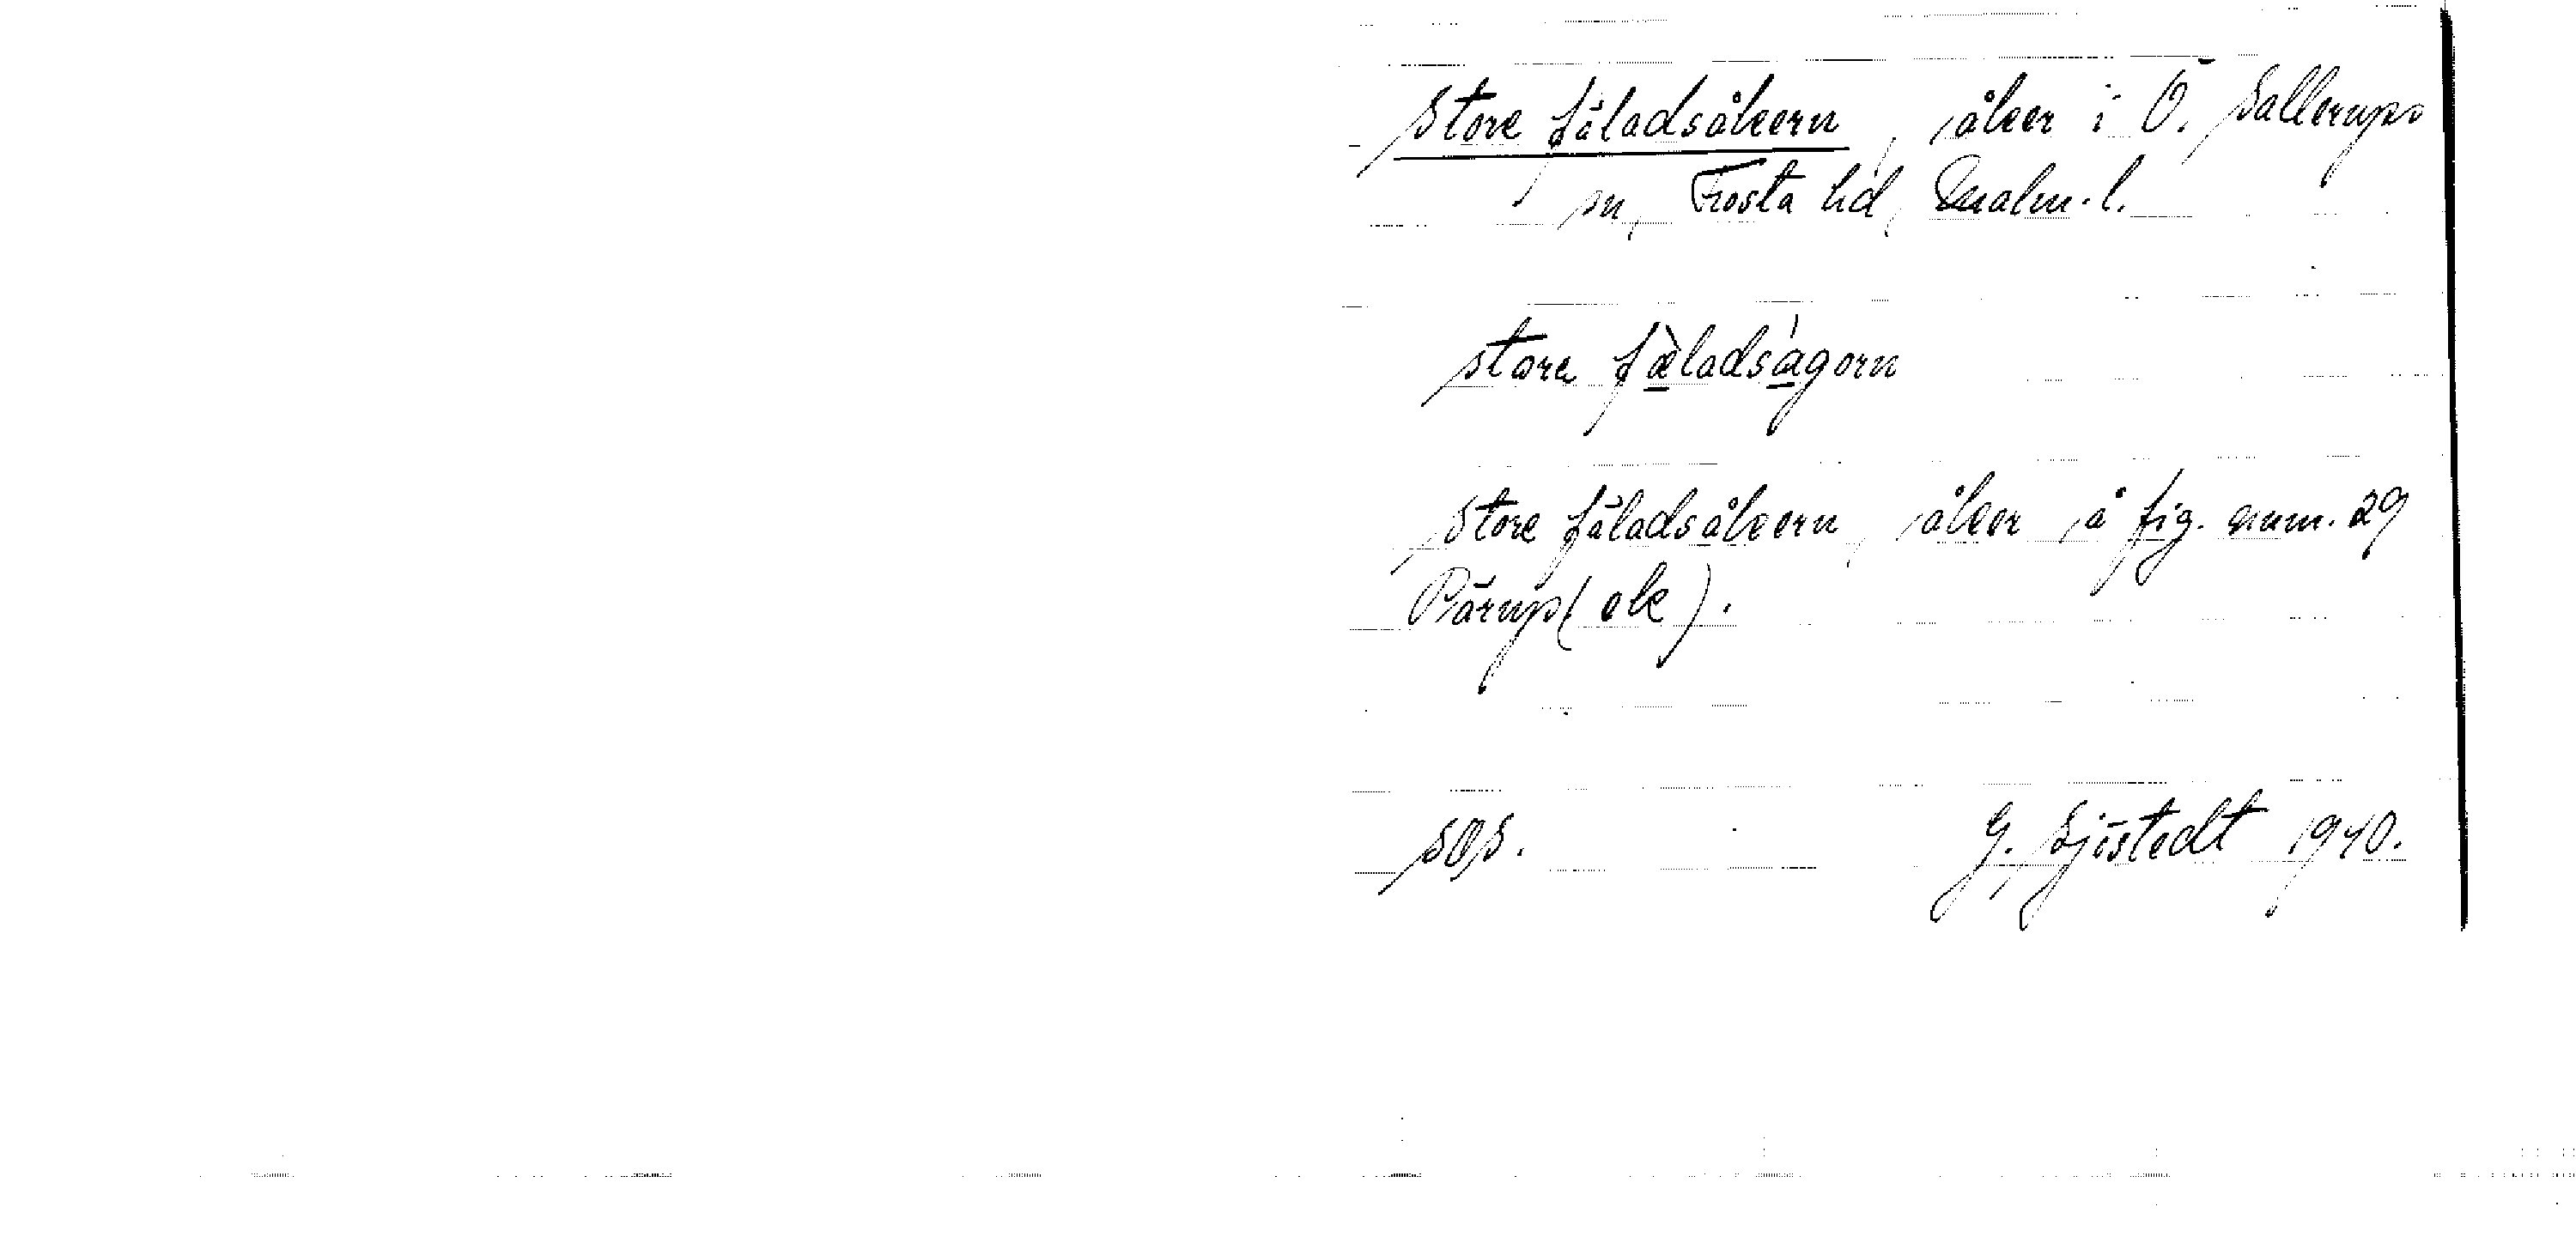 Store fäladsåkern, åker i Ö. Sallerups
sn, Frosta hd, Malm. l.
store fæladsagorn
Store fäladsåkern, åker å fig. num. 29
Pärup (ek).
SOS. G. Sjöstedt 1940.